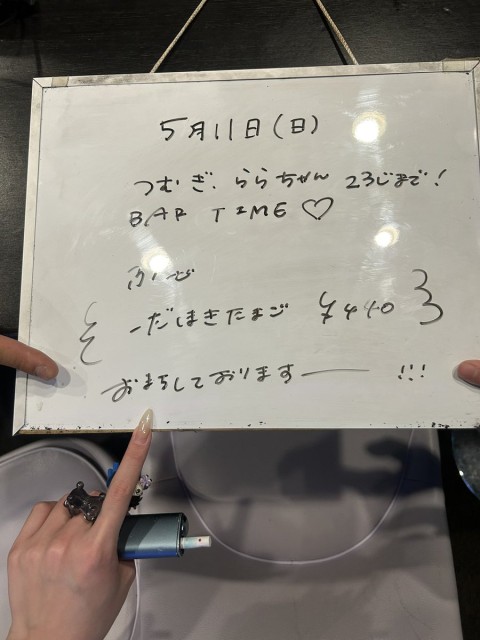 5月11日(日)
つむぎ、ららちゃん 23じまで!
BAR TIME♡
-だしまきたまご ¥440
おまちしておりますー !!!